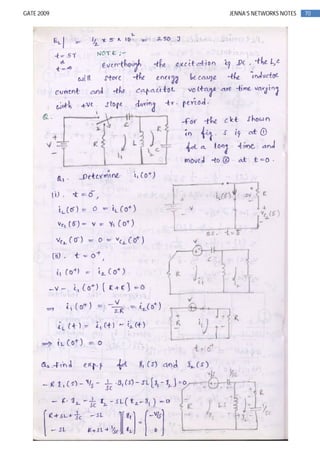 GATE 2009
JENNA'S NETWORKS NOTES 70
E_L| = 1/2 x 5 x 10² = 250 J
t = 5τ
NOTE :-
Everything the excitation is DC, the L, C
will store the energy because the inductor
current and the capacitor voltage are time varying
with +ve slope during tr. period.
Q.
-For the ckt shown
in fig. S is at ①
for a long time and
moved to ② at t=0.
Q1. Determine i₁(0⁺)
(i). t = 0⁻,
i_L(0⁻) = 0 = i_L(0⁺)
= 0 = 
(ii). t = 0⁺,
i₁(0⁺) = i₂(0⁺)
-V - i₁(0⁺) [R+R] = 0
⇒ i₁(0⁺) = -V/2R = i₂(0⁺)
i_L(t) = i₁(t) - i₂(t)
⇒ i_L(0⁺) = 0
t = 0⁺
Q2. Find exp. for I₁(s) and I₂(s)
- R I₁(s) - V/s - 1/sc I₁(s) - SL[I₁ - I₂] = 0
- R I₂ - 1/sc I₂ - SL(I₂ - I₁) = 0
[R+SL+1/sc -SL] [I₁] = [-V/s]
[-SL R+SL+1/sc] [I₂] [0]